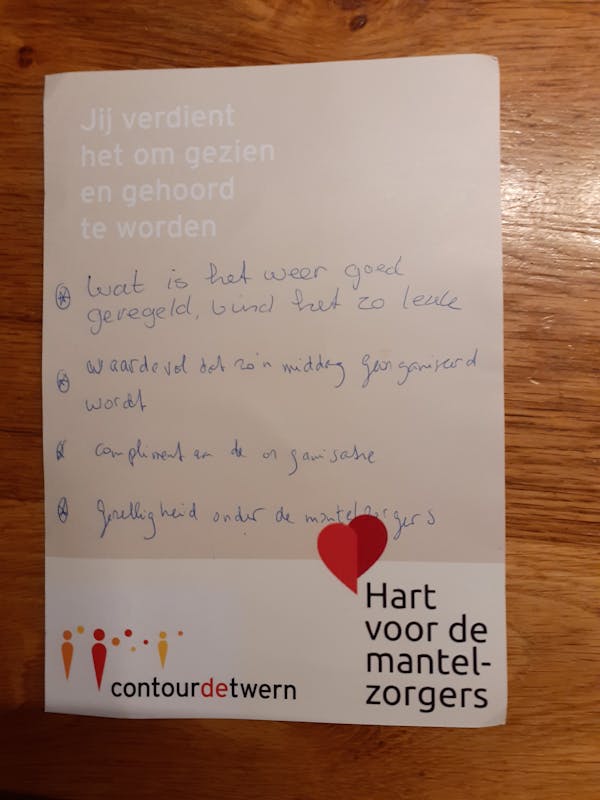 Jij verdient
het om gezien
en gehoord
te worden
wat is het weer goed
geregeld, vind het zo leuk
waardevol dat zo'n middag georganiseerd
wordt
compliment aan de organisatie
gezelligheid onder de mantelzorgers
Hart
voor de
mantel-
zorgers
contourdetwern